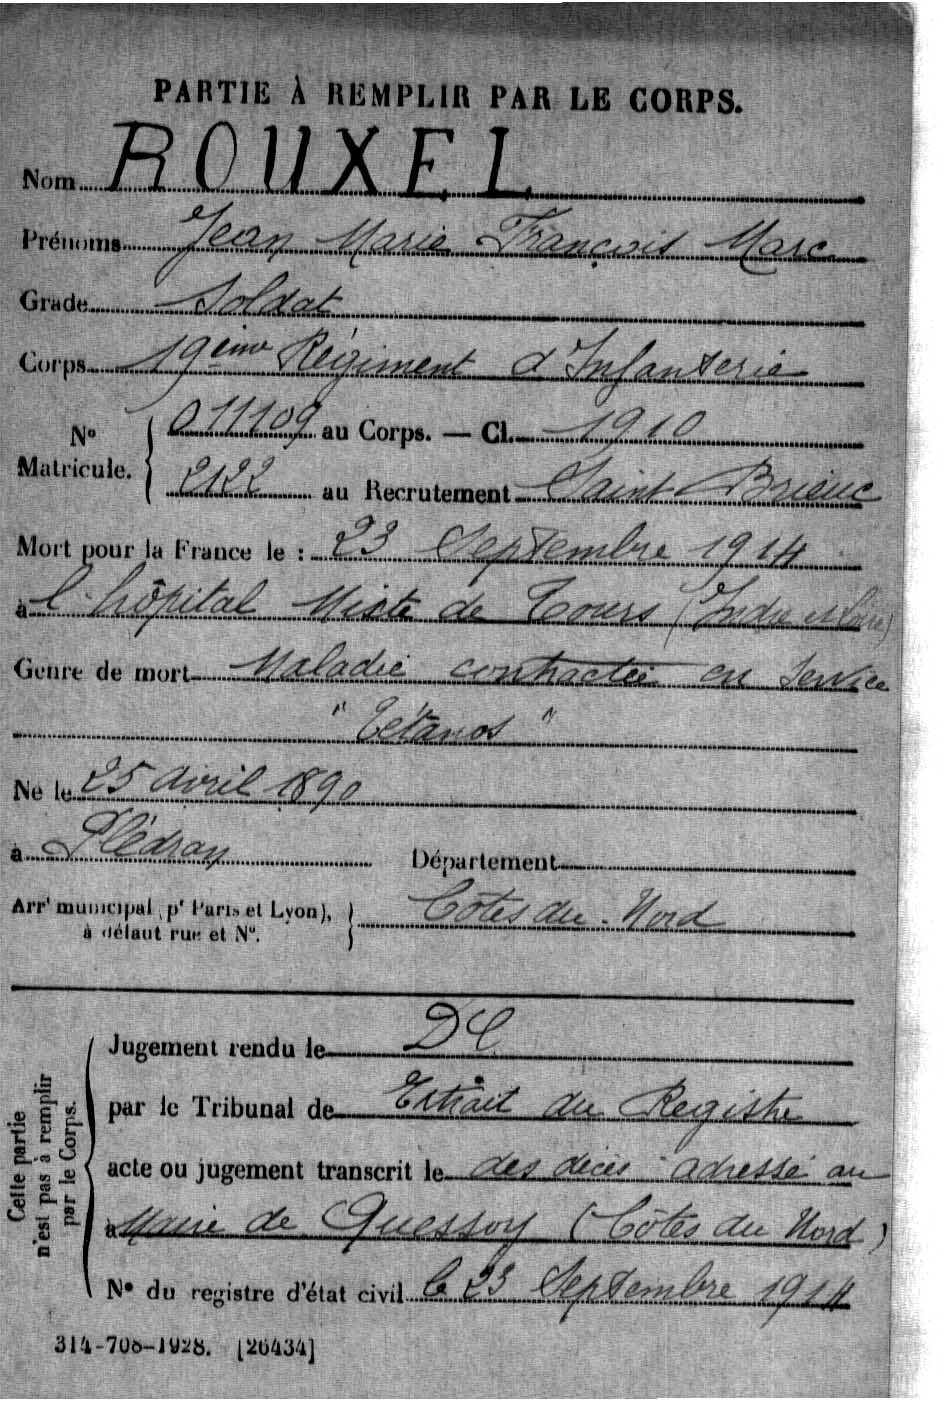 PARTIE À REMPLIR PAR LE CORPS.
Nom ROUXEL
Prénoms Jean Marie François Marc
Grade Soldat
Corps 19ème Régiment d'Infanterie
N° Matricule. 011109 au Corps. — Cl. 1910
2122 au Recrutement Saint Brieuc
Mort pour la France le : 23 Septembre 1914
à l'hôpital Mixte de Tours (Indre et Loire)
Genre de mort Maladie contractée en service
"Tétanos"
Né le 25 avril 1890
à Plédran Département
Arrt municipal (pr Paris et Lyon), Côtes du Nord
à défaut rue et N°.
Jugement rendu le DC
par le Tribunal de Extrait du Registre
acte ou jugement transcrit le des décès adressé au
à Maire de Quessoy (Côtes du Nord)
N° du registre d'état civil le 23 Septembre 1914
Cette partie
n'est pas à remplir
par le Corps.
314-708-1928. [26434]